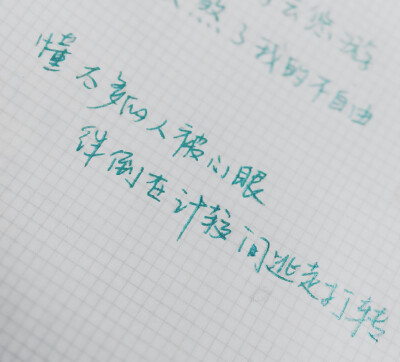 了我的不自由
懂太多的人被心眼
绊倒在计较间逃走打转